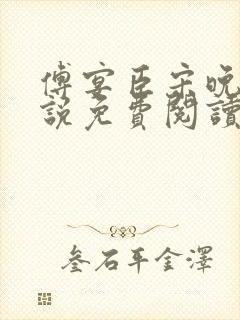 傅宴臣宋晚
說免費閱讀
叄石平金澤